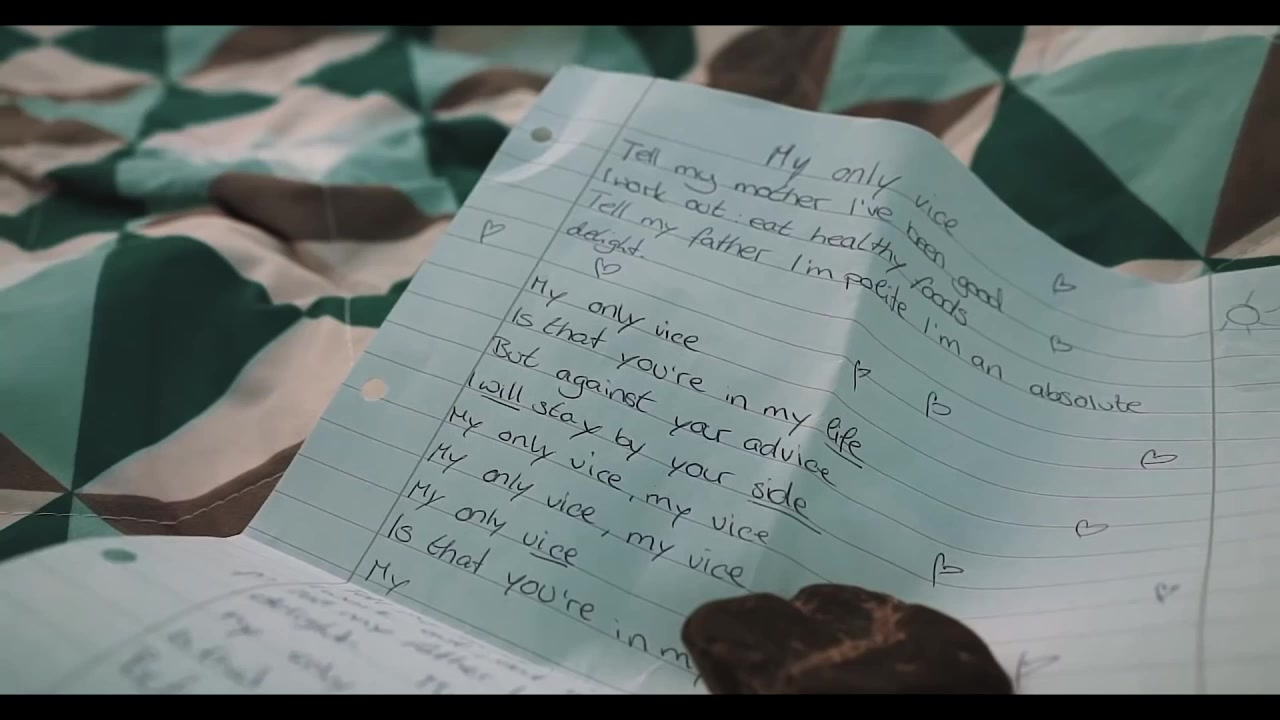 My only vice
Tell my mother I've been good
I work out eat healthy foods
Tell my father I'm polite I'm an absolute
delight.
My only vice
Is that you're in my life
But against your advice
I will stay by your side
My only vice, my vice
My only vice, my vice
My only vice
Is that you're in m
My
delight
my only